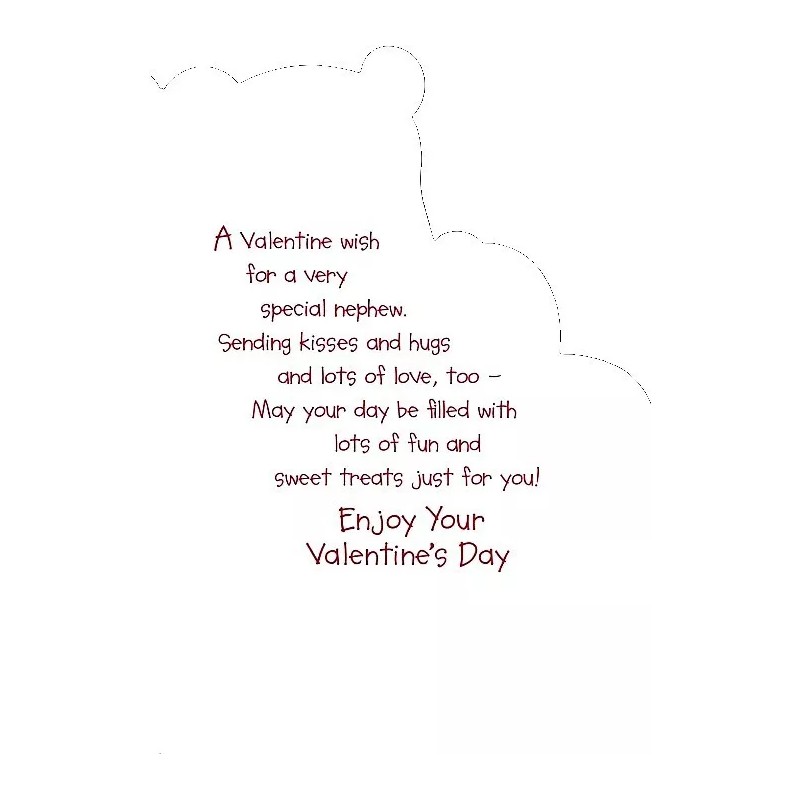 A Valentine wish
for a very
special nephew.
Sending kisses and hugs
and lots of love, too –
May your day be filled with
lots of fun and
sweet treats just for you!
Enjoy Your
Valentine's Day